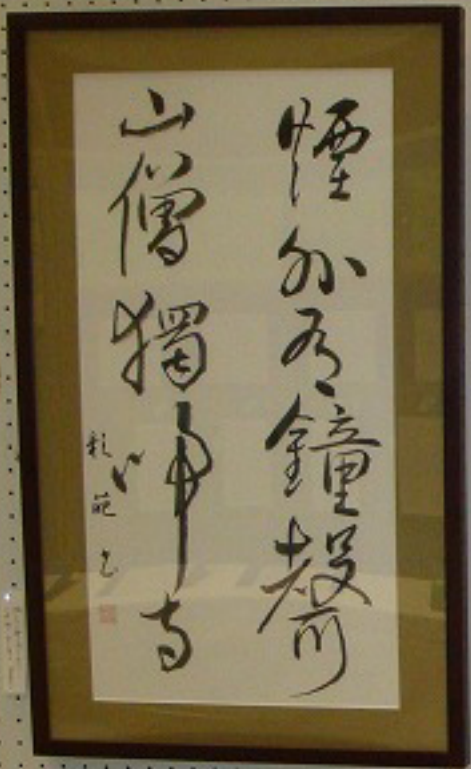 煙外有鐘聲
山僧獨歸寺
彩苑書